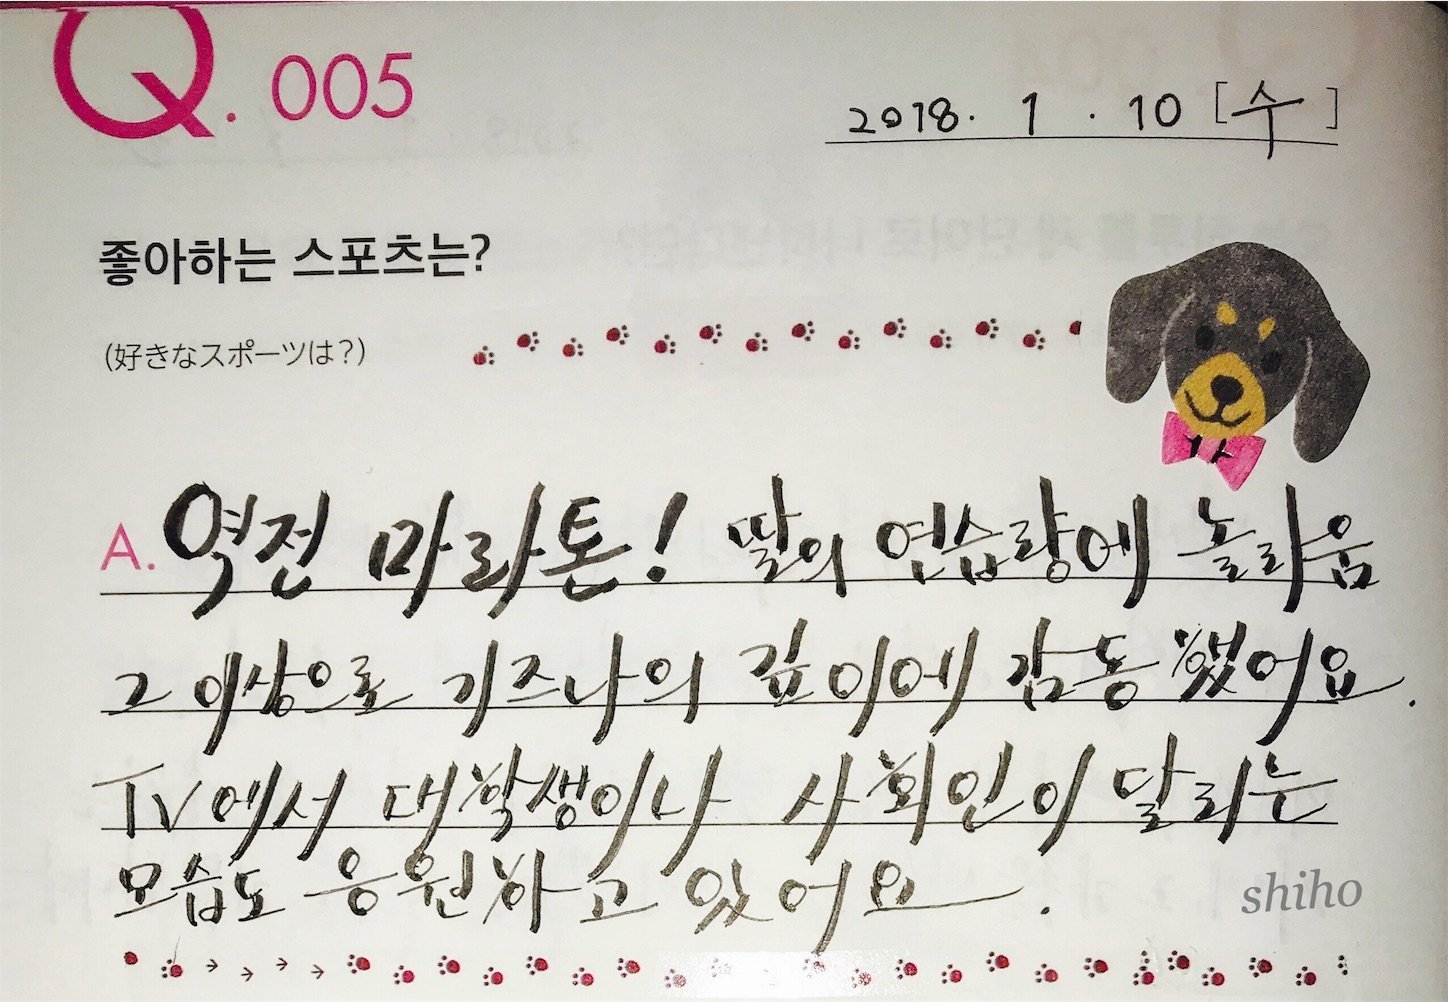 Q. 005
2018. 1. 10 [수]
좋아하는 스포츠는?
(好きなスポーツは？)
A. 역전 마라톤! 딸의 연습량에 놀라움
그 이상으로 기즈나의 깊이에 감동했어요.
TV에서 대학생이나 사회인이 달리는
모습도 응원하고 있어요.
shiho